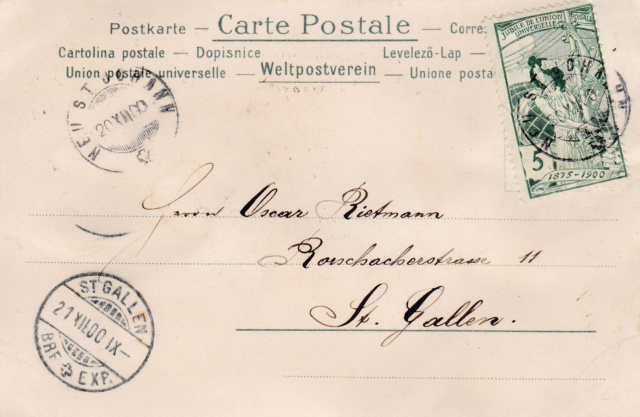 Postkarte – Carte Postale – Corre
Cartolina postale – Dopisnice Levelező-Lap –
Union postale universelle – Weltpostverein – Unione posta
JUBILÉ DE L'UNION
POSTALE UNIVERSELLE
5
1875-1900
NEU ST JOHANN
20 XII 00
Herrn Oscar Rietmann
Rorschacherstrasse 11
St. Gallen.
ST GALLEN
21 XII.00 IX–
BRF EXP.